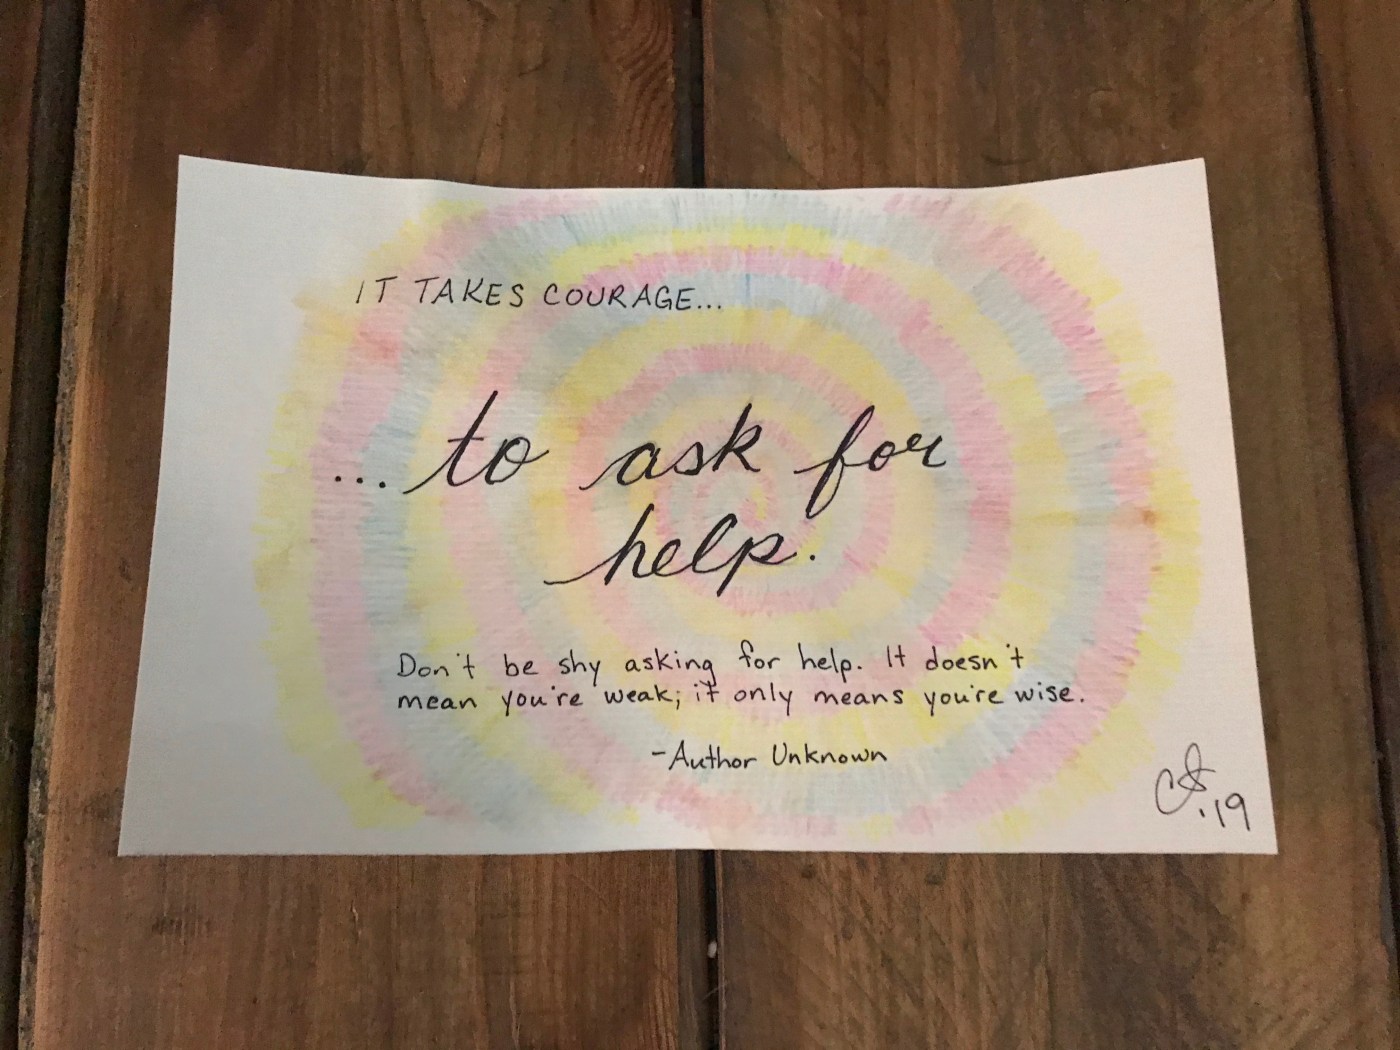 IT TAKES COURAGE...
...to ask for
help.
Don't be shy asking for help. It doesn't
mean you're weak; it only means you're wise.
-Author Unknown
CS.19